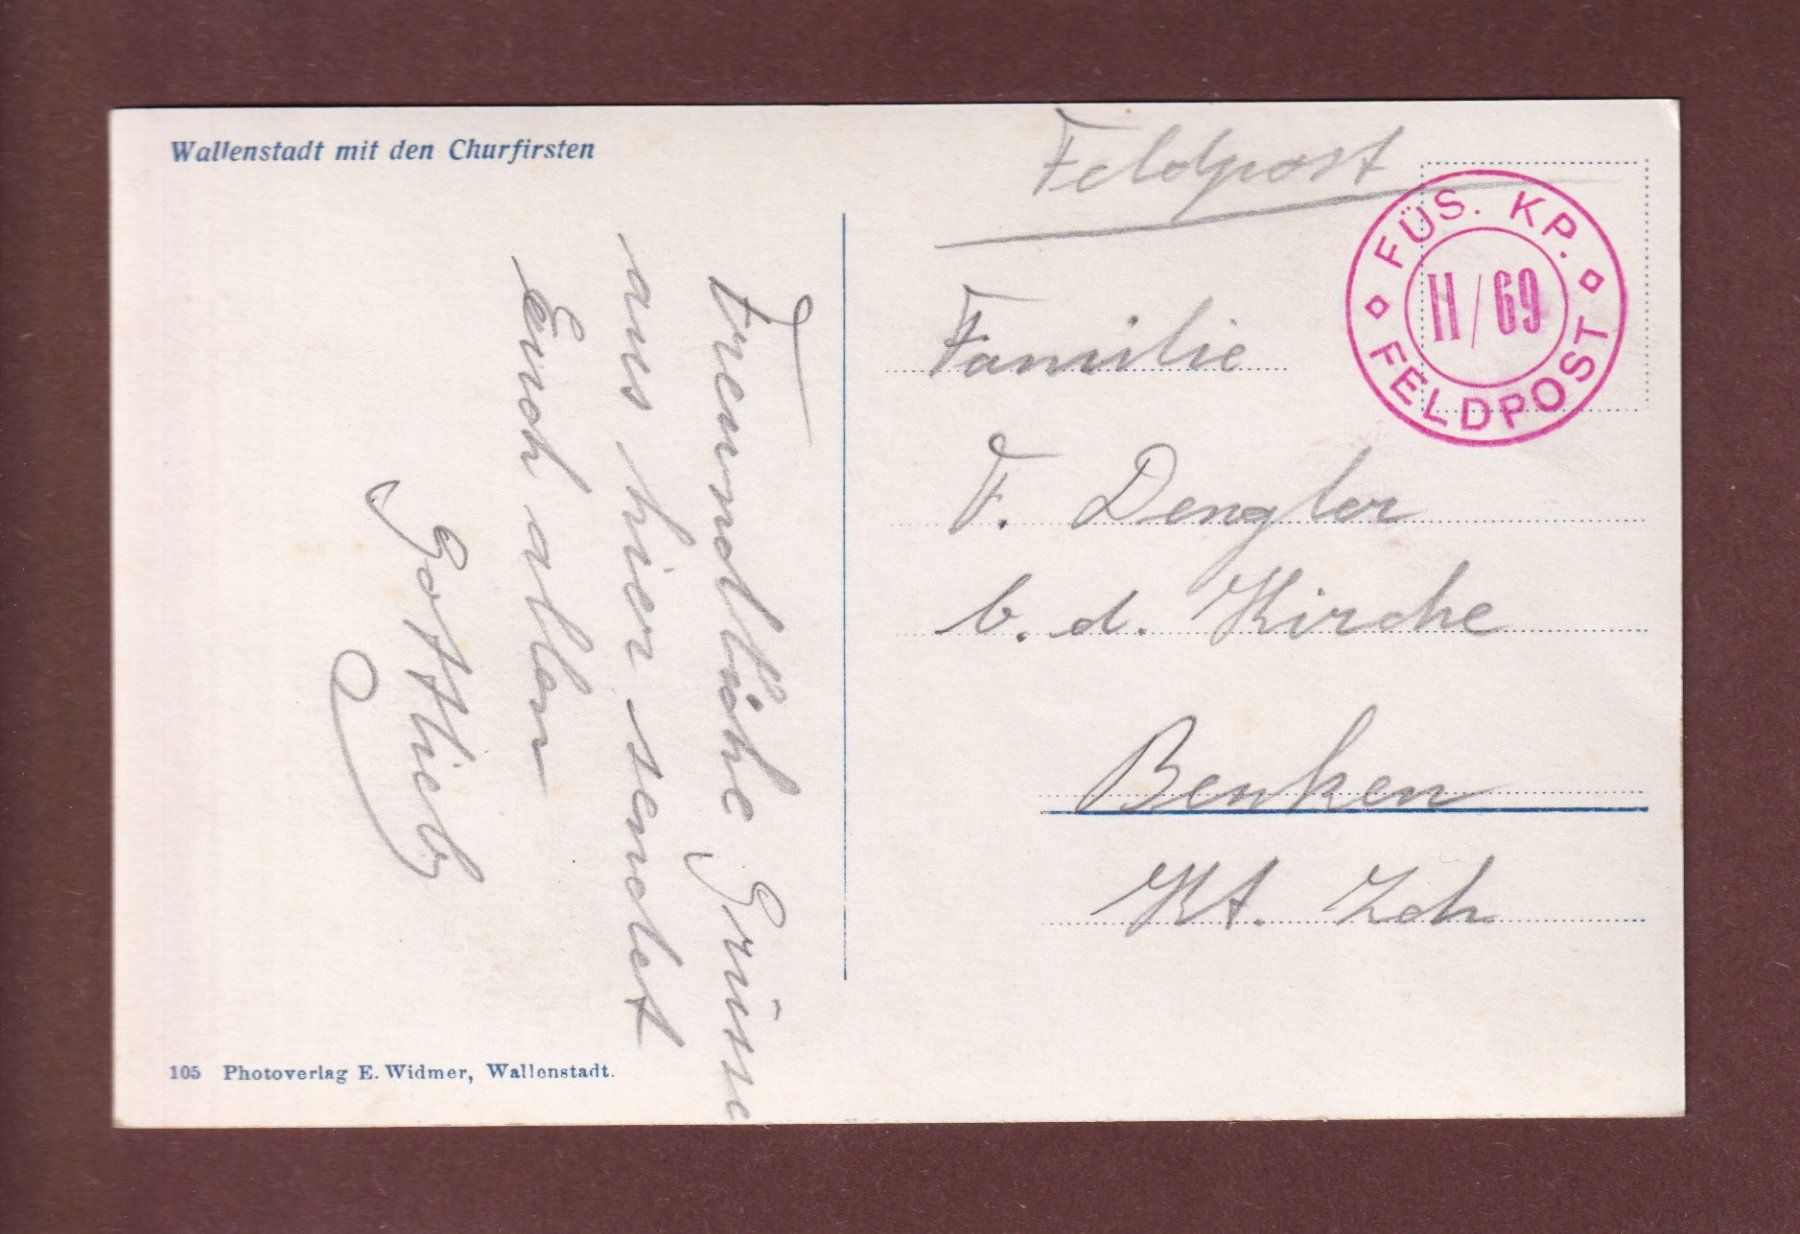 Wallenstadt mit den Churfirsten
Freundliche Grüsse
aus hier sendet
Euch allen
Gottlieb
105 Photoverlag E. Widmer, Wallenstadt.
Feldpost
FÜS. KP.
II/69
FELDPOST
Familie
F. Dengler
b. d. Kirche
Benken
Kt. Zch